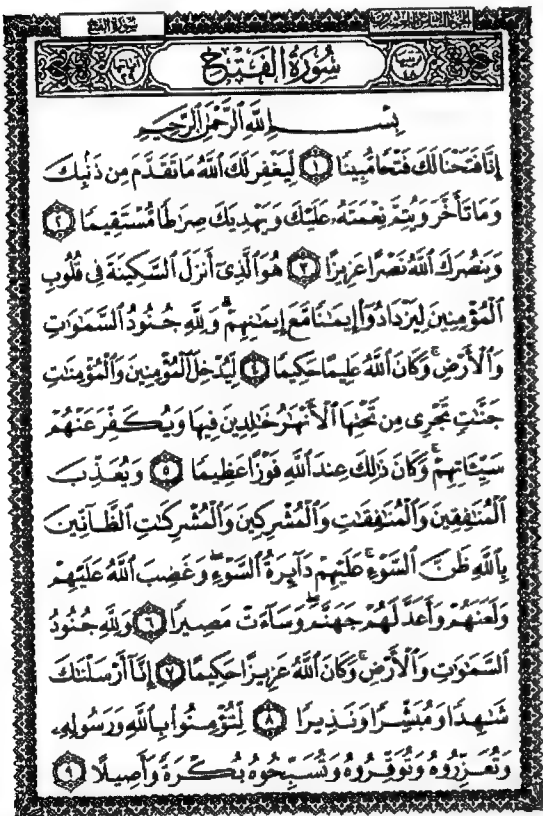 سُورَةُ الفَتْحِ
سُورَةُ الفَتْحِ
بِسْمِ اللَّهِ الرَّحْمَٰنِ الرَّحِيمِ
إِنَّا فَتَحْنَا لَكَ فَتْحًا مُّبِينًا ١ لِّيَغْفِرَ لَكَ اللَّهُ مَا تَقَدَّمَ مِن ذَنبِكَ
وَمَا تَأَخَّرَ وَيُتِمَّ نِعْمَتَهُ عَلَيْكَ وَيَهْدِيَكَ صِرَاطًا مُّسْتَقِيمًا ٢
وَيَنصُرَكَ اللَّهُ نَصْرًا عَزِيزًا ٣ هُوَ الَّذِي أَنزَلَ السَّكِينَةَ فِي قُلُوبِ
الْمُؤْمِنِينَ لِيَزْدَادُوا إِيمَانًا مَّعَ إِيمَانِهِمْ وَلِلَّهِ جُنُودُ السَّمَاوَاتِ
وَالْأَرْضِ وَكَانَ اللَّهُ عَلِيمًا حَكِيمًا ٤ لِّيُدْخِلَ الْمُؤْمِنِينَ وَالْمُؤْمِنَاتِ
جَنَّاتٍ تَجْرِي مِن تَحْتِهَا الْأَنْهَارُ خَالِدِينَ فِيهَا وَيُكَفِّرَ عَنْهُمْ
سَيِّئَاتِهِمْ وَكَانَ ذَٰلِكَ عِندَ اللَّهِ فَوْزًا عَظِيمًا ٥ وَيُعَذِّبَ
الْمُنَافِقِينَ وَالْمُنَافِقَاتِ وَالْمُشْرِكِينَ وَالْمُشْرِكَاتِ الظَّانِّينَ
بِاللَّهِ ظَنَّ السَّوْءِ عَلَيْهِمْ دَائِرَةُ السَّوْءِ وَغَضِبَ اللَّهُ عَلَيْهِمْ
وَلَعَنَهُمْ وَأَعَدَّ لَهُمْ جَهَنَّمَ وَسَاءَتْ مَصِيرًا ٦ وَلِلَّهِ جُنُودُ
السَّمَاوَاتِ وَالْأَرْضِ وَكَانَ اللَّهُ عَزِيزًا حَكِيمًا ٧ إِنَّا أَرْسَلْنَاكَ
شَاهِدًا وَمُبَشِّرًا وَنَذِيرًا ٨ لِّتُؤْمِنُوا بِاللَّهِ وَرَسُولِهِ
وَتُعَزِّرُوهُ وَتُوَقِّرُوهُ وَتُسَبِّحُوهُ بُكْرَةً وَأَصِيلًا ٩